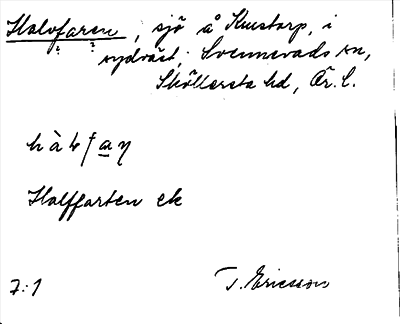 Halvfaren, sjö å Knustorp, i
sydväst, Svennevads sn,
Sköllersta hd, Ör. l.
Halffarten ek
7:1 T. Ericsson